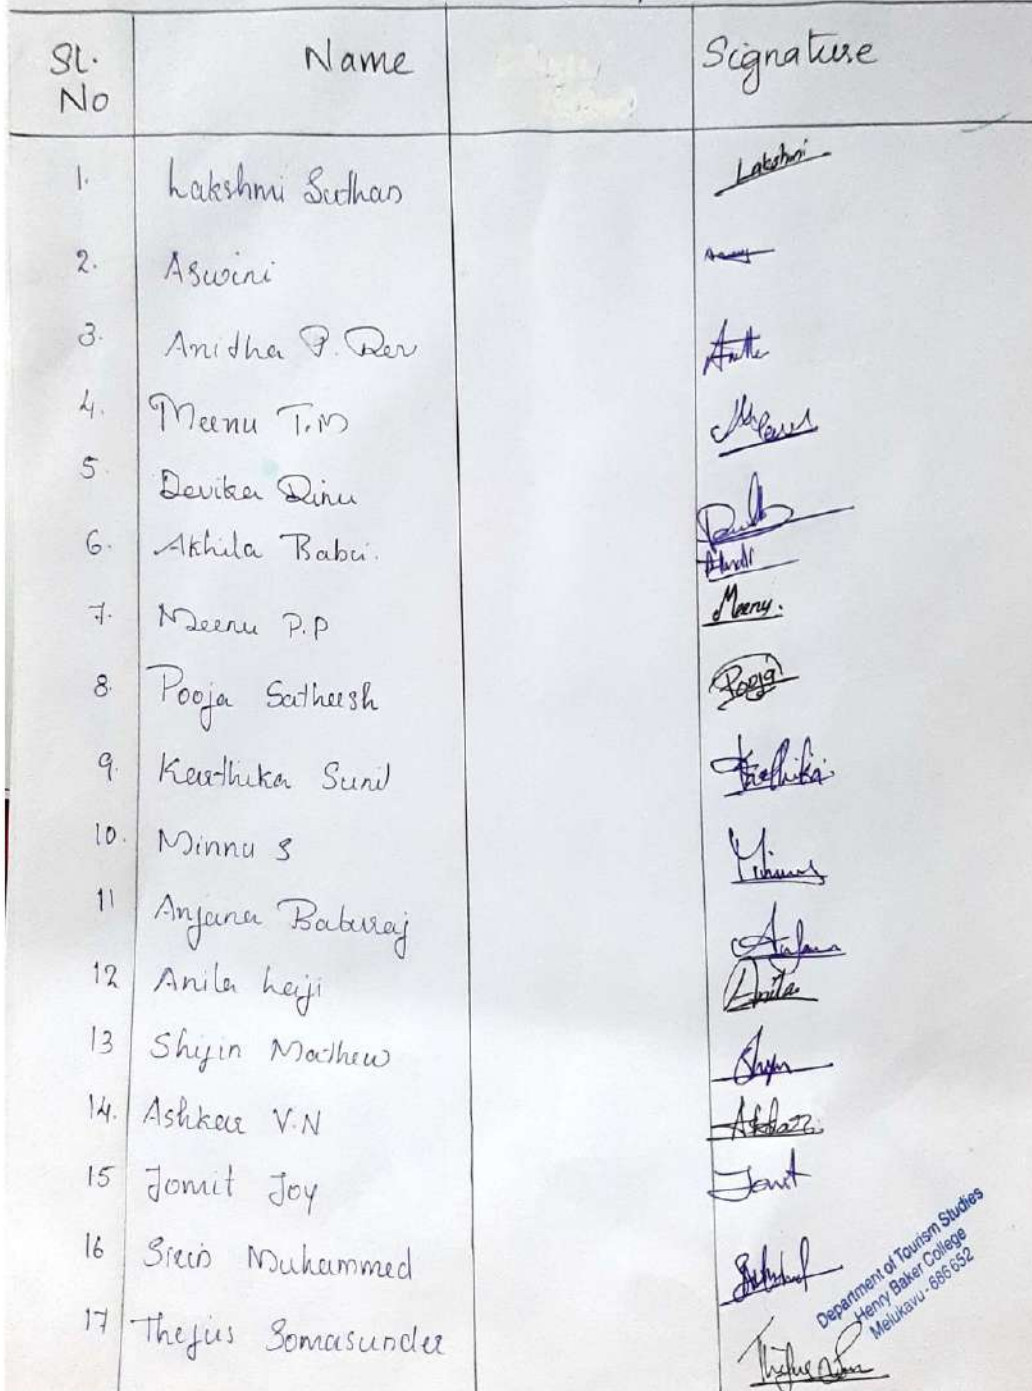 Sl. No Name Signature
1. Lakshmi Suthan Lakshmi
2. Aswini
3. Anitha P. Dev Anitha
4. Meenu T.M
5. Devika Dinu
6. Akhila Babu.
7. Meenu P.P Meenu.
8. Pooja Satheesh Pooja
9. Karthika Sunil Karthika
10. Minnu S
11 Anjana Baburaj Anjana
12 Anila Laiji Anila
13 Shijin Mathew
14. Ashkar V.N
15 Jomit Joy Jomit
16 Muhammed
17 Thejus Somasunder
Department of Tourism Studies
Henry Baker College
Melukavu - 686 652